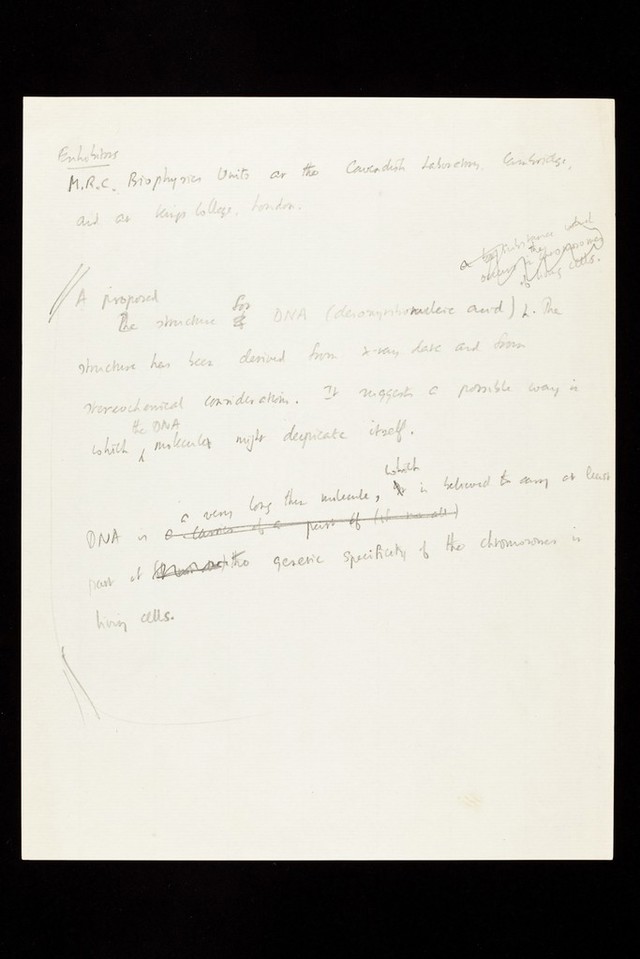 Exhibitors
M.R.C. Biophysics Units at the Cavendish Laboratory, Cambridge,
and at Kings College, London.
a substance which
occurs in the chromosomes
of living cells.
A proposed
The structure for DNA (deoxyribonucleic acid). The
structure has been derived from x-ray data and from
stereochemical considerations. It suggests a possible way in
the DNA
which molecules might duplicate itself.
a very long thin molecule, which
DNA is a carrier of a part of (if not all) it is believed to carry at least
part of the genetic specificity of the chromosomes in
living cells.